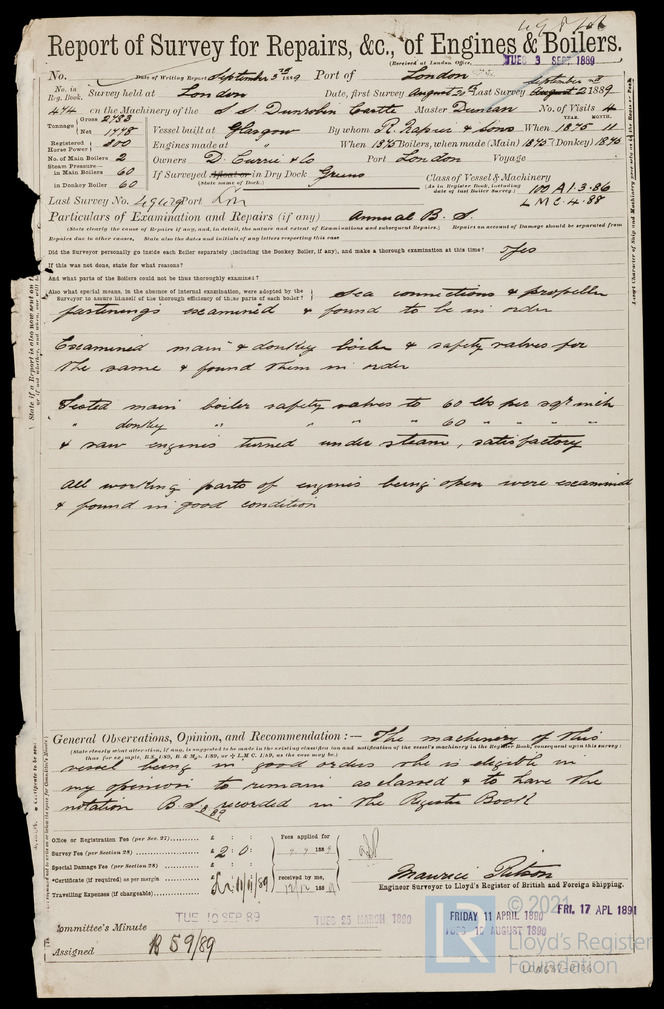 Report of Survey for Repairs, &c., of Engines & Boilers.
(Received at London Office, TUES 3 SEPT 1889
No. Date of Writing Report September 3rd 1889 Port of London
No. in Reg. Book. Survey held at London Date, first Survey August Last Survey September 2nd August 2 1889
474 on the Machinery of the S.S. Dunrobin Castle Master Duncan No. of Visits 4
Tonnage Gross 2783 Net 1778 Vessel built at Glasgow By whom R. Napier & Sons When YEAR. 1875 MONTH. 11
Registered Horse Power 300 Engines made at " When 1875 Boilers, when made (Main) 1875 (Donkey) 1875
No. of Main Boilers 2 Owners D. Currie & Co Port London Voyage
Steam Pressure— in Main Boilers 60 If Surveyed Afloat or in Dry Dock Greens Class of Vessel & Machinery 100 A1.3.86
in Donkey Boiler 60 (State name of Dock.) (As in Register Book, including date of last Boiler Survey.) LMC.4.88
Last Survey No. 49479 Port Lon
Particulars of Examination and Repairs (if any) Annual B.S.
(State clearly the cause of Repairs if any, and, in detail, the nature and extent of Examinations and subsequent Repairs.) Repairs on account of Damage should be separated from
Repairs due to other causes, State also the dates and initials of any letters respecting this case
Did the Surveyor personally go inside each Boiler separately (including the Donkey Boiler, if any), and make a thorough examination at this time? Yes
If this was not done, state for what reasons?
And what parts of the Boilers could not be thoroughly examined?
Also what special means, in the absence of internal examination, were adopted by the
Surveyor to assure himself of the thorough efficiency of those parts of each boiler? Sea connections & propeller
fastenings examined & found to be in order
Examined main & donkey boiler & safety valves for
the same & found them in order
Tested main boiler safety valves to 60 lbs per sqr inch
" donkey " " " " 60 " " " "
& saw engines turned under steam, satisfactory
All working parts of engines being open were examined
& found in good condition
General Observations, Opinion, and Recommendation :— The machinery of this
(State clearly what alteration, if any, is suggested to be made in the existing classification and notification of the vessel's machinery in the Register Book, consequent upon this survey:
thus for example, B.S. 1/89, B. & M.S. 1/89, or L.M.C. 1/89, as the case may be.)
vessel being in good order she is eligible in
my opinion to remain as classed & to have the
notation B.S. 8.89 recorded in the Register Book
Office or Registration Fee (per Sec. 27) £ : : Fees applied for
Survey Fee (per Section 28) £ 2 : 0 : 188
Special Damage Fee (per Section 28) £ : :
*Certificate (if required) as per margin received by me,
Travelling Expenses (if chargeable) £ : : 188
Maurice Pitson
Engineer Surveyor to Lloyd's Register of British and Foreign Shipping.
Committee's Minute TUES 10 SEP 89 TUES 25 MARCH 1890 FRIDAY 11 APRIL 1890 FRI. 17 APL 1891
TUES 12 AUGUST 1890
Assigned BS 9/89
© 2021
LR Lloyd's Register
Foundation
LON667-0106